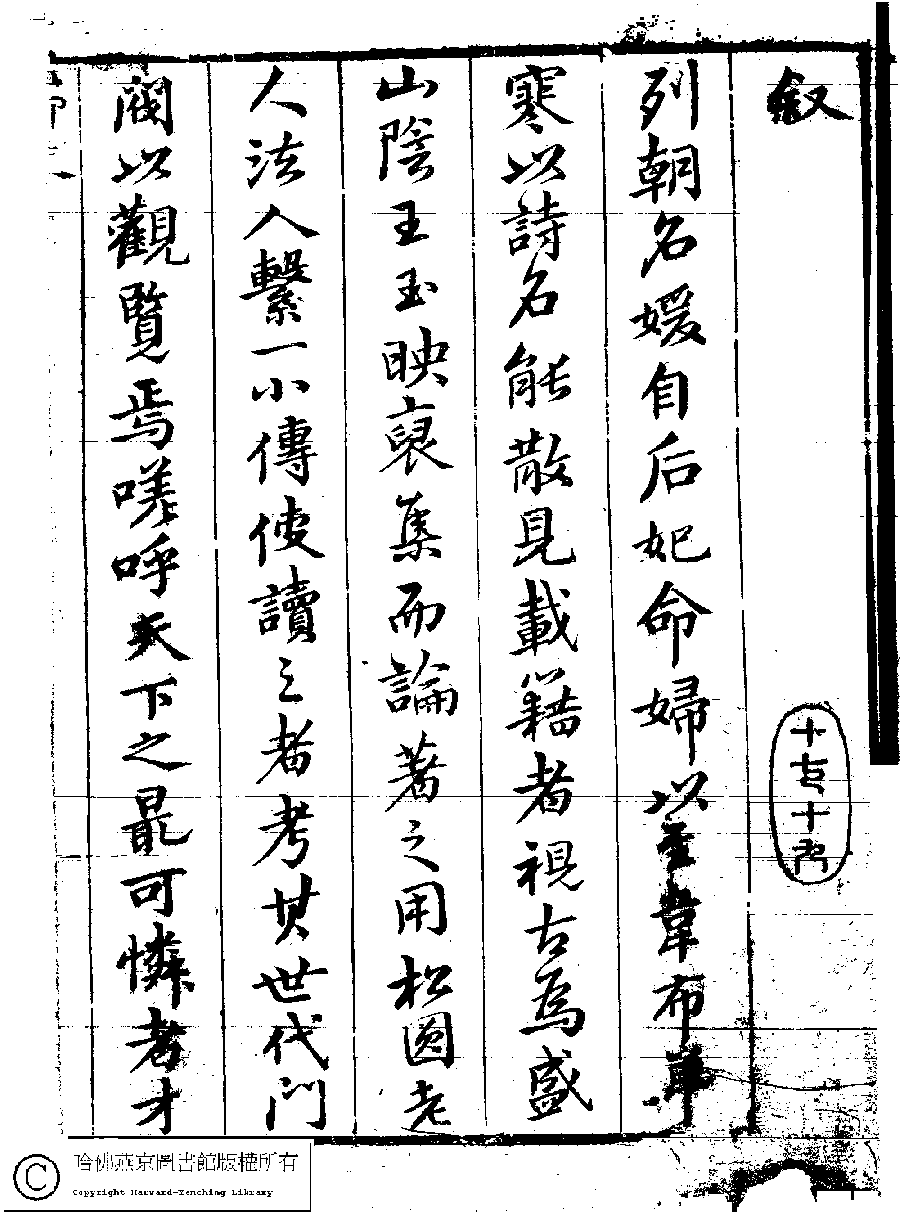 叙
列朝名媛自后妃命婦以至韋布單
寒以詩名能散見載籍者視古為盛
山陰王玉映裒集而論著之用松圓老
人法人繫一小傳使讀之者考其世代門
閥以觀覽焉嗟呼天下之最可憐者才
哈佛燕京圖書館版權所有
Copyright Harvard-Yenching Library